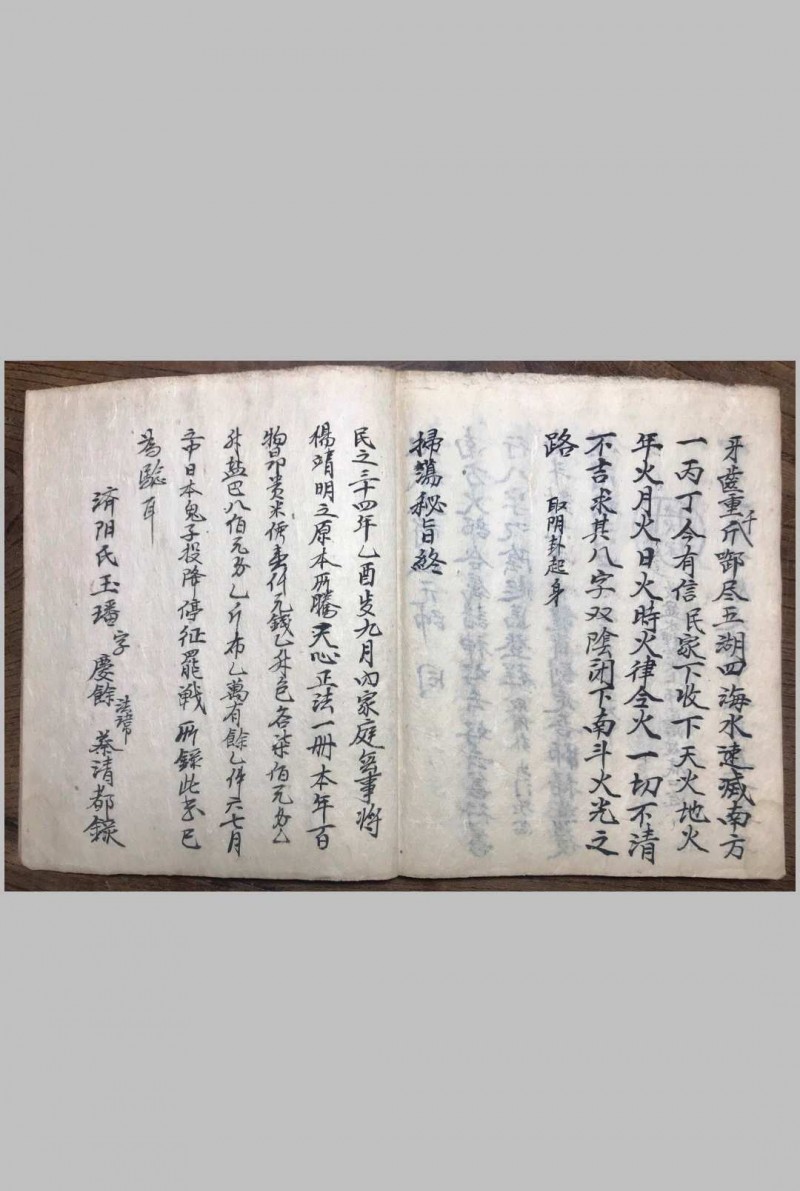 牙齒重千斤啣尽五湖四海水速滅南方
一丙丁今有信民家下收下天火地火
年火月火日火時火律令火一切不清
不吉求其八字双陰闭下南斗火光之
路 取阴卦起身
掃蕩秘旨終
民之三十四年乙酉歲九月内家庭無事将
楊靖明之原本所騰天心正法一册本年百
物昂贵米價壹仟元錢乙升色各柒佰元另乙
升盐巴八佰元另乙斤布乙萬有餘乙件六七月
日本鬼子投降停征罷戦所錄此
為驗耳
済阳氏玉璠字慶餘 蔡清都錄